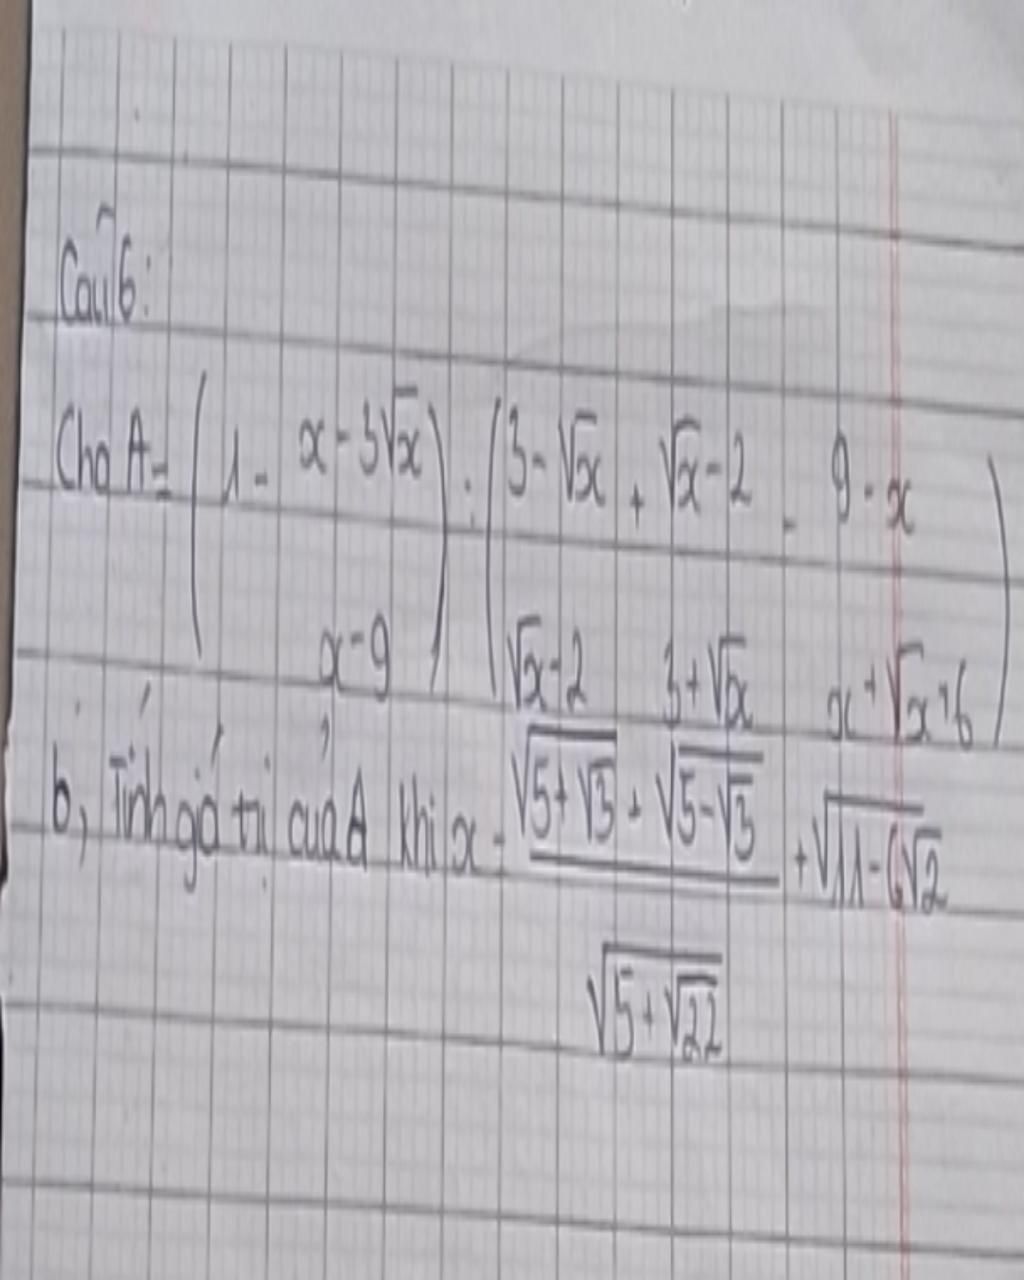 Câu 6:
Cho A = ( 1 - (x - 3√x)/(x - 9) ) : ( (3 - √x)/(√x - 2) + (√x - 2)/(3 + √x) - (9 - x)/(x + √x + 6) )
b, Tính giá trị của A khi x = (√(5 + √3) + √(5 - √3))/√(5 + √22) + √(11 - 6√2)